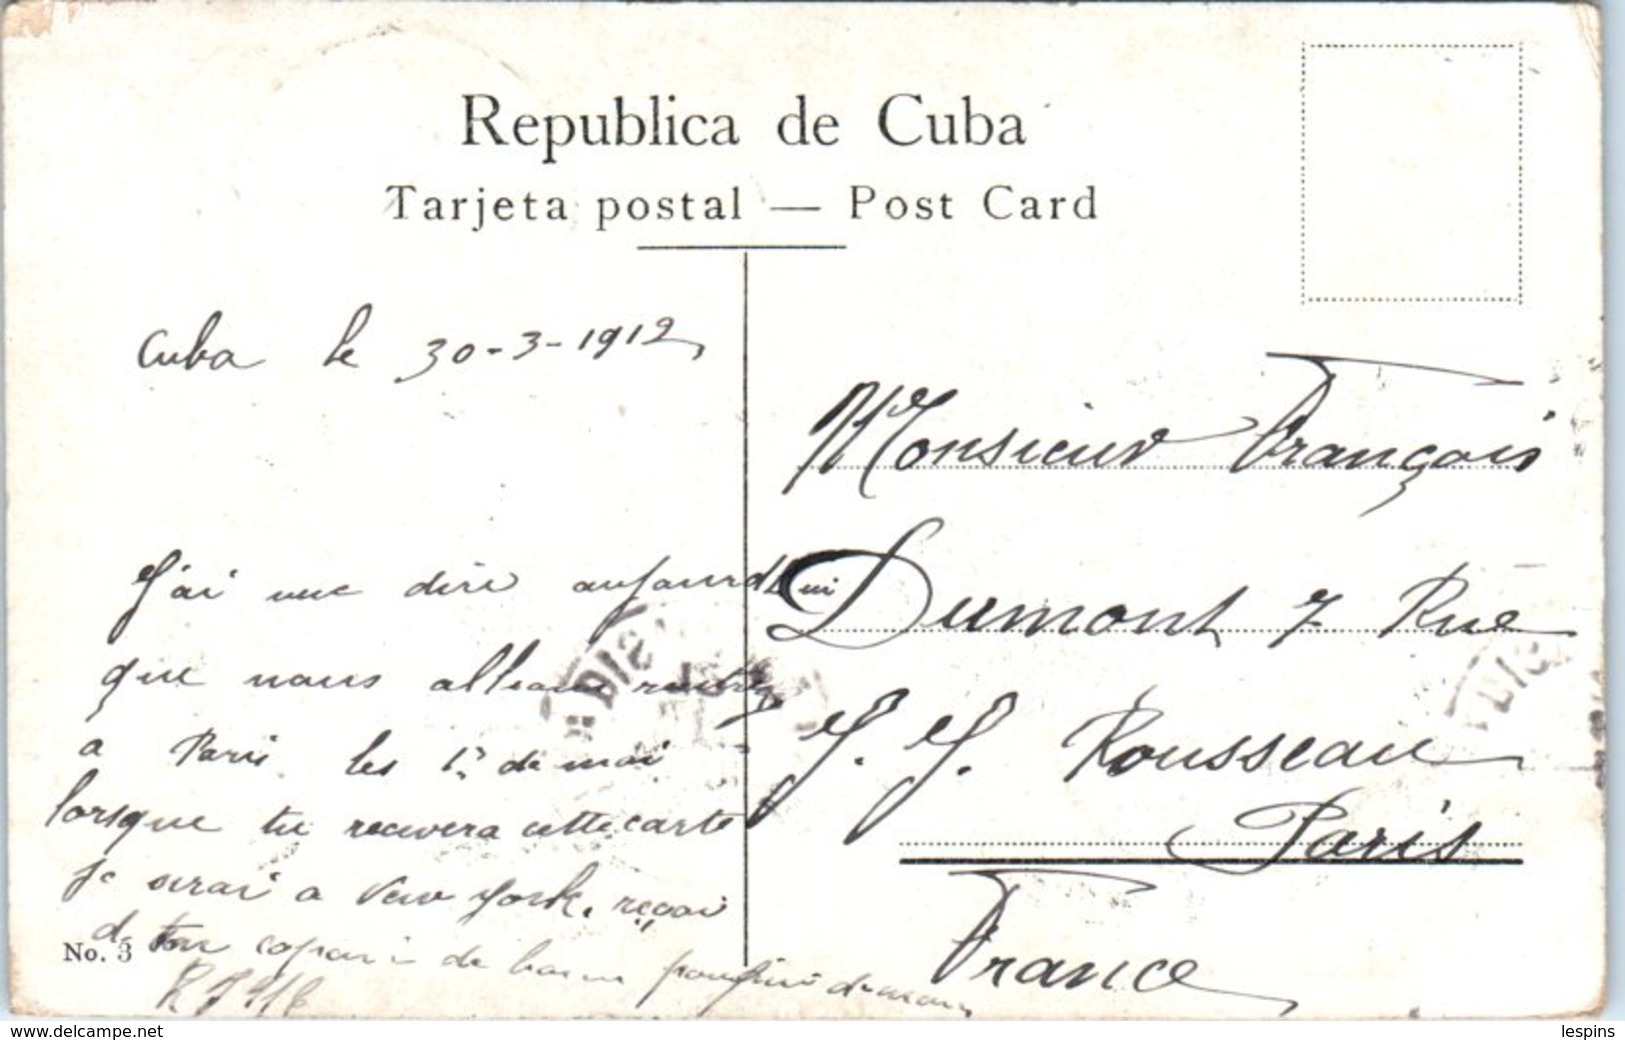 Republica de Cuba
Tarjeta postal — Post Card
Cuba le 30-3-1912,
Monsieur François
Dumont 7 Rue
J. J. Rousseau
Paris
France
J'ai dire aujourd'hui
que nous
a Paris les 1r de mai
lorsque tu recevera cette carte
Je serai a New York. reçoi
de ton copain de
No. 3
www.delcampe.net
lespins